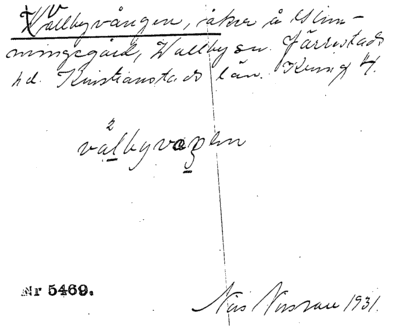 Vallbyvången, åker å Glim-
mingegård, Wallby sn. Järrestads
hd. Kristianstads län. Kungf 4.
va²lbyvaŋen
Nr 5469.
Nils 1931.